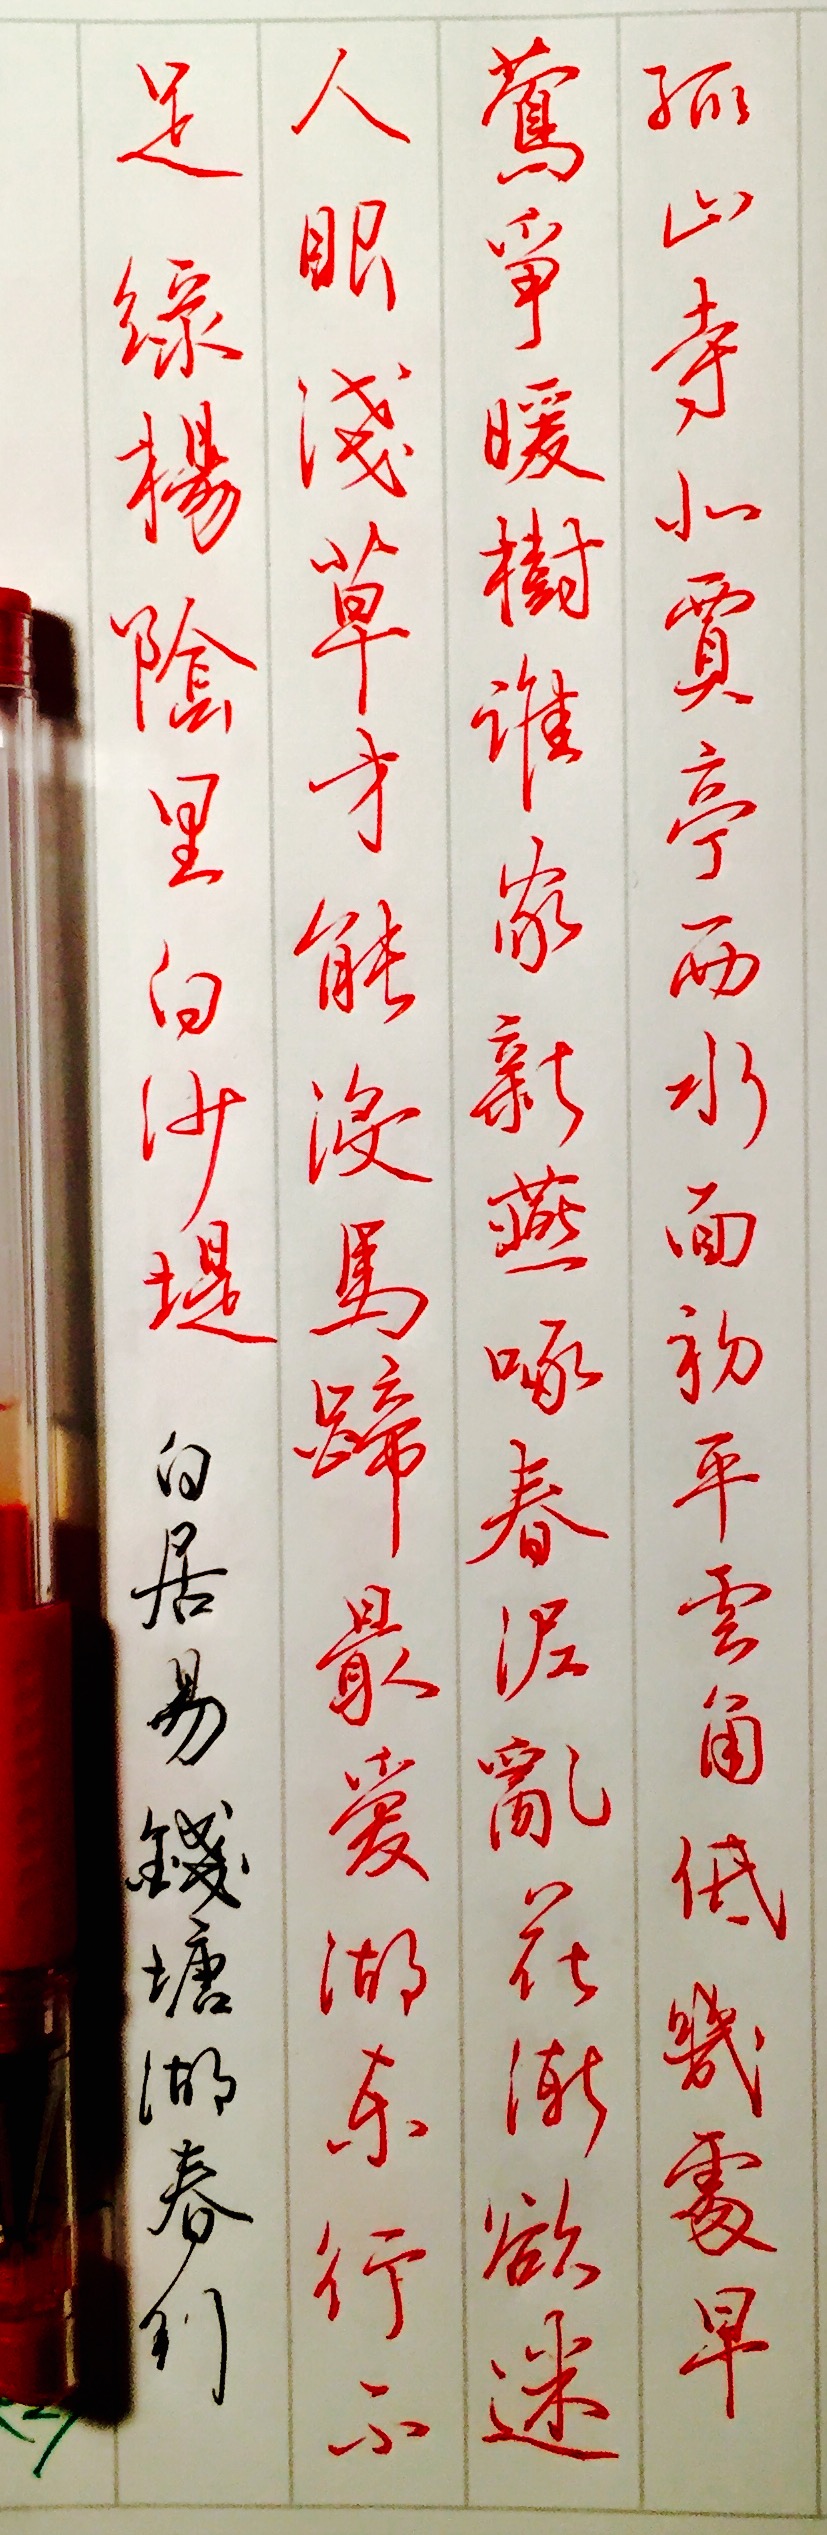 孤山寺北賈亭西水面初平雲角低幾處早
鶯爭暖樹誰家新燕啄春泥亂花漸欲迷
人眼淺草才能沒馬蹄最愛湖東行不
足綠楊陰里白沙堤 白居易錢塘湖春行